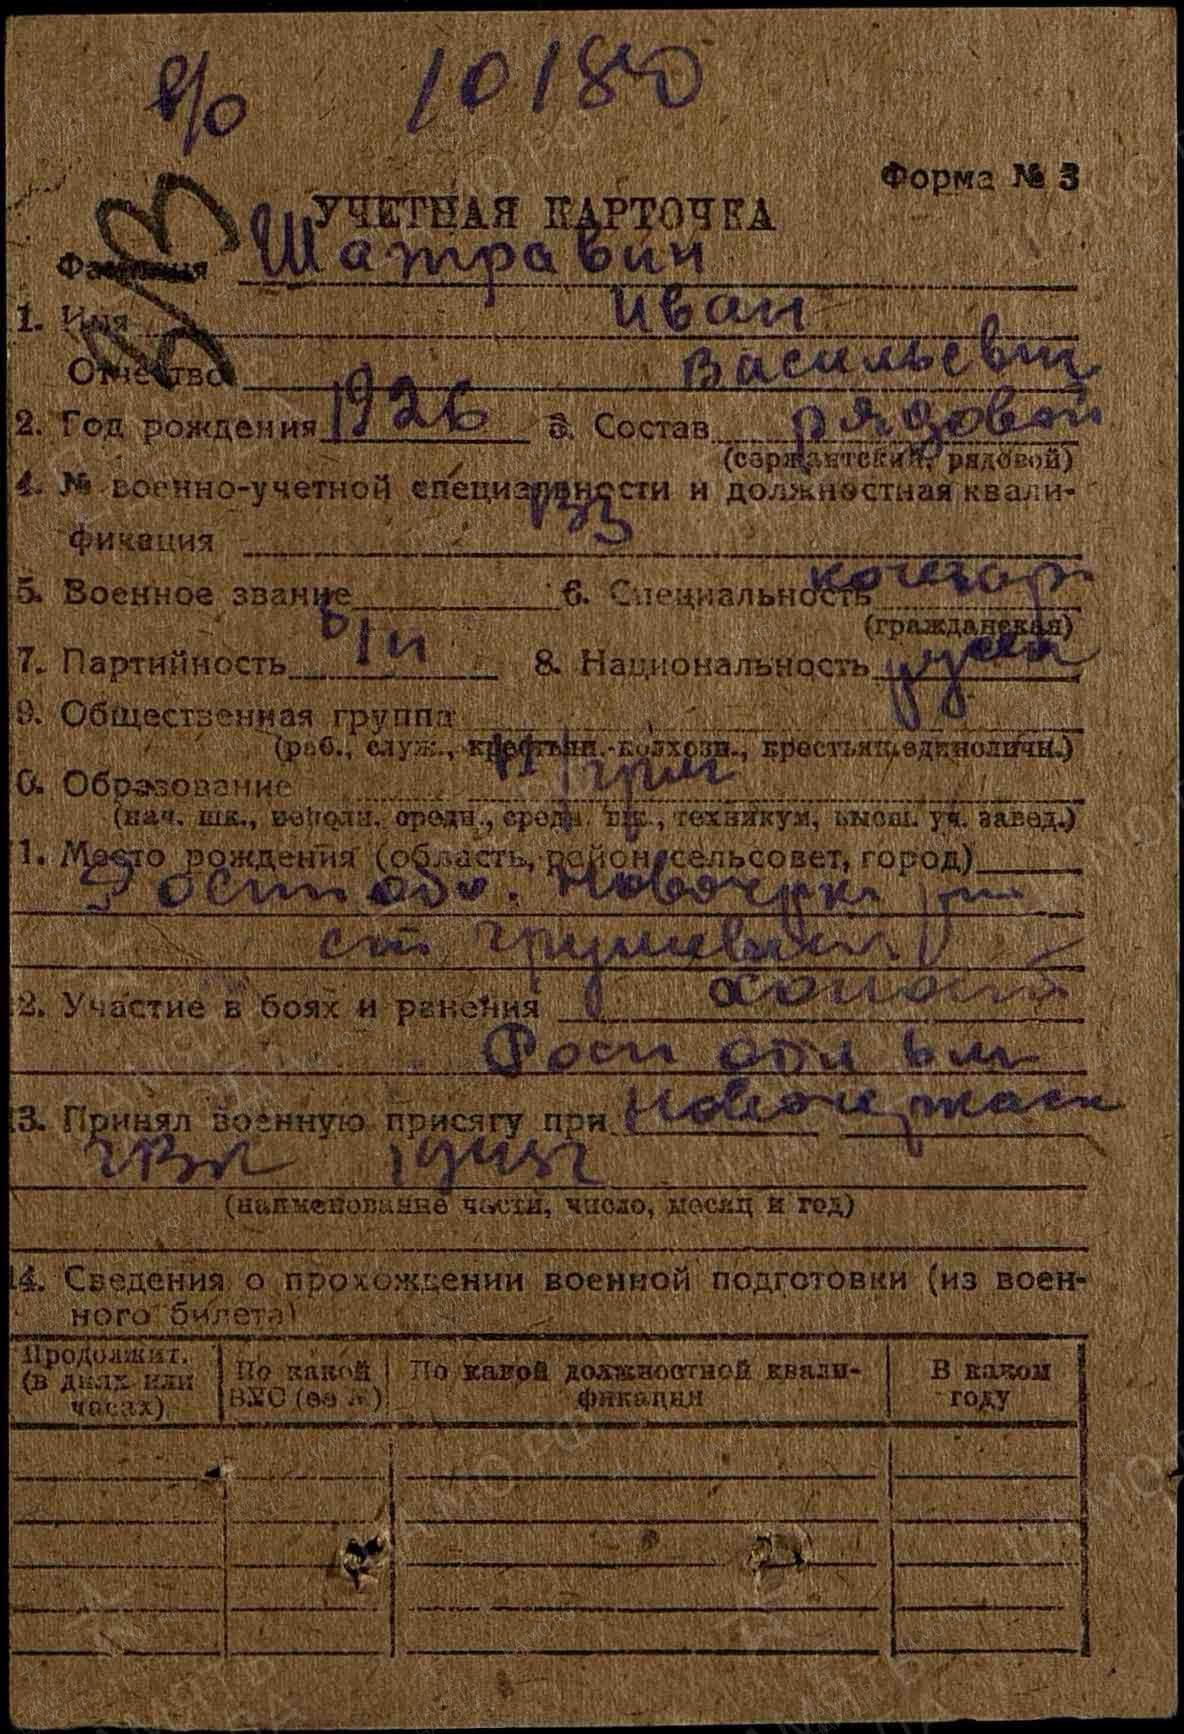 в/о 10180
Форма № 3
УЧЕТНАЯ КАРТОЧКА
Фамилия Шатравин
1. Имя Иван
Отчество Васильевич
2. Год рождения 1926 3. Состав рядовой
(сержантский, рядовой)
4. № военно-учетной специальности и должностная квали-
фикация 133
5. Военное звание 6. Специальность кочегар
(гражданская)
7. Партийность б/п 8. Национальность русск
9. Общественная группа
(раб., служ., крестьян.-колхозн., крестьян единоличн.)
0. Образование
(нач. шк., неполн. средн., средн. шк., техникум, высш. уч. завед.)
1. Место рождения (область, район, сельсовет, город)
Рост обл. Новочерк
ст Грушевская
2. Участие в боях и ранения холост
Рост обл
3. Принял военную присягу при Новочеркасск
ГВК
(наименование части, число, месяц и год)
14. Сведения о прохождении военной подготовки (из воен-
ного билета)
Продолжит. (в днях или часах) По какой ВУС (ее №) По какой должностной квали-фикации В каком году